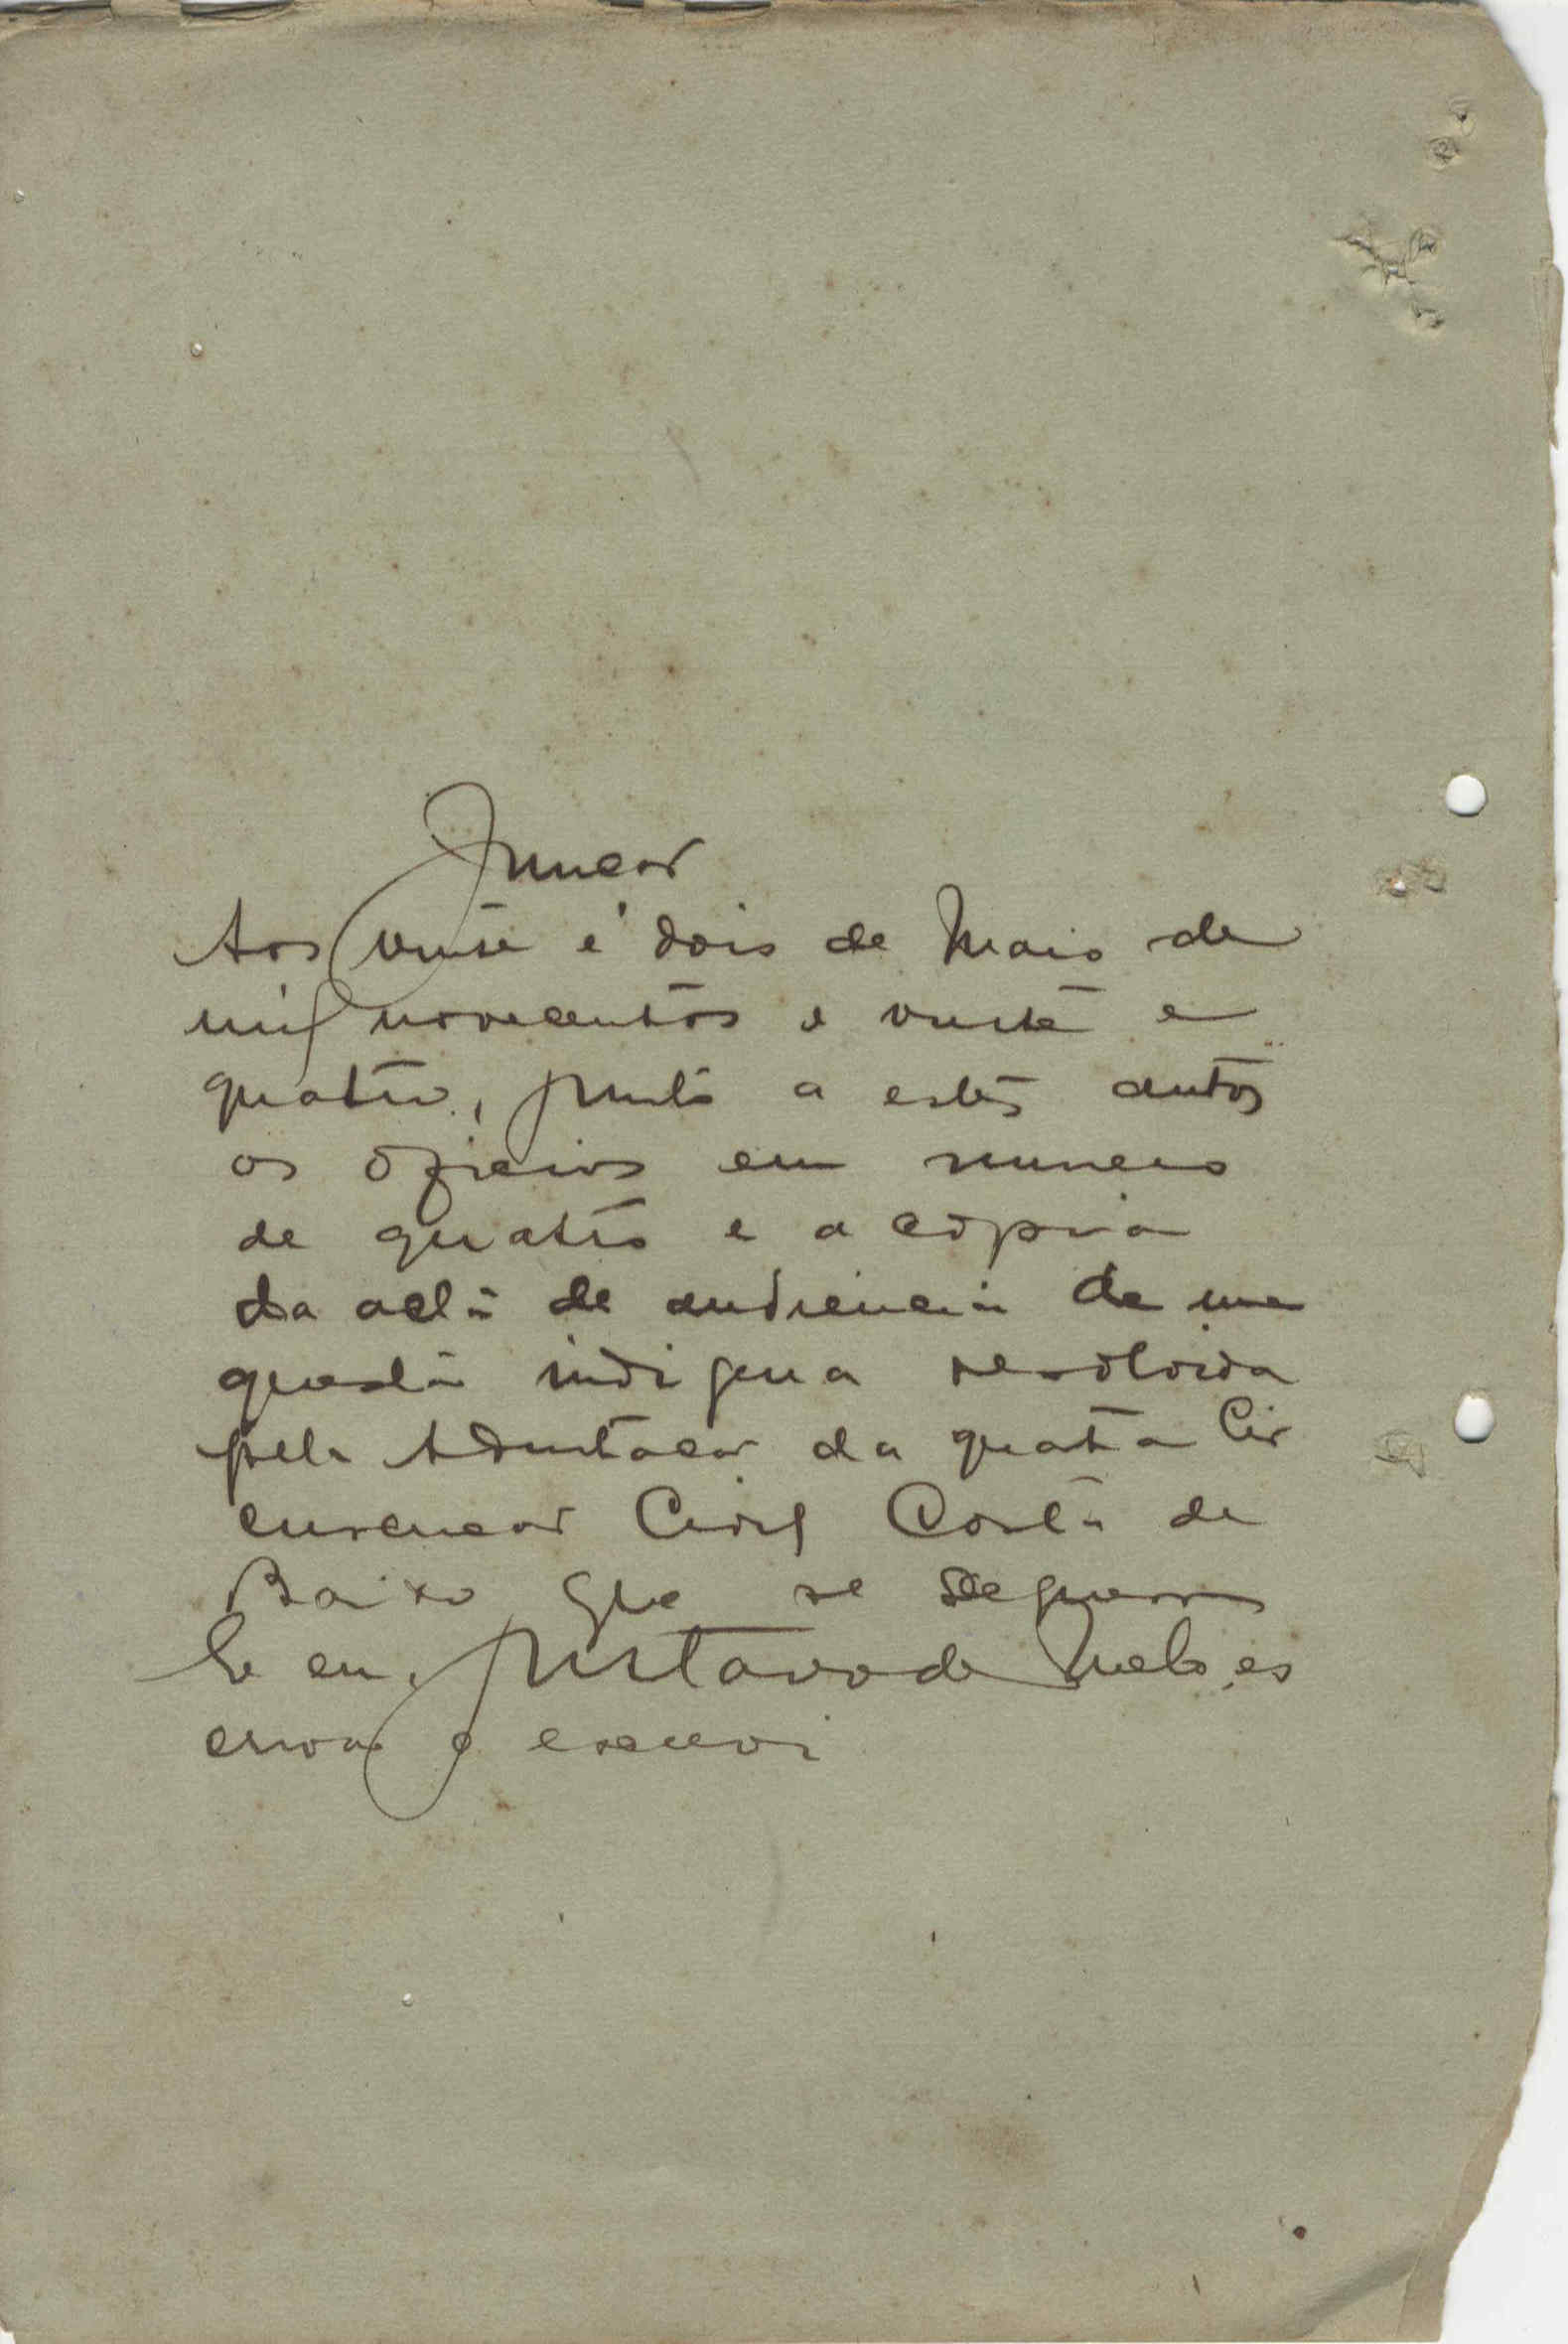 Junção
Aos vinte e dois de Maio de
mil novecentos e vinte e
quatro, junto a estes autos
os oficios em numero
de quatro e a copia
da acta de audiencia de uma
questão indigena resolvida
pela Admtação da quarta Cir
cunscrição Civil Costa de
Baixo que se seguem
E eu, Gustavo de Melo, es
crivão o escrevi